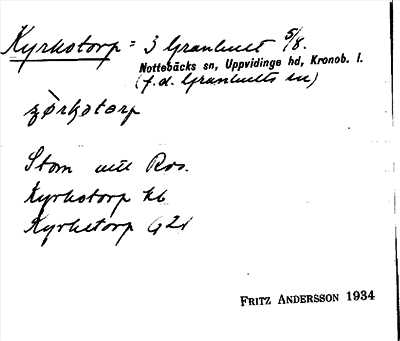 Kyrkotorp = 3 Granhult 5/8.
Nottebäcks sn, Uppvidinge hd, Kronob. l.
(f.d. Granhults sn)
Stom utt Ros.
Kyrkotorp kb
Kyrketorp G21
FRITZ ANDERSSON 1934